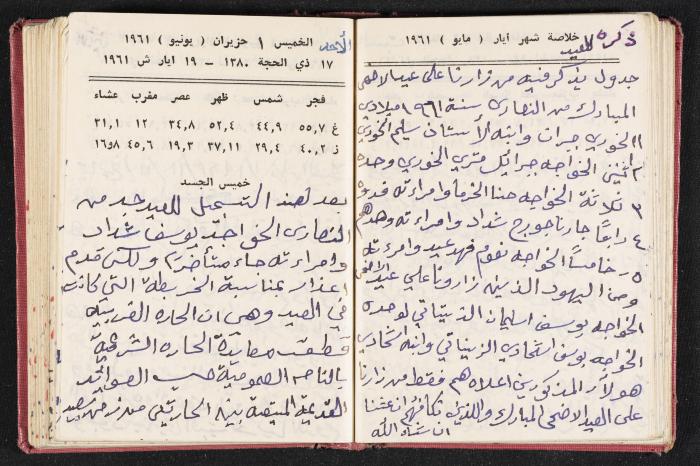 ذكره للعيد
خلاصة شهر أيار ( مايو ) ١٩٦١
جدول يذكر فيه من زارنا على عيد الاضحى
المبارك من النصارى سنة ١٩٦١ ميلادي
١ الخوري جبران وابنه الأستاذ سليم الخوري
٢ اثنين الخواجه جبرائيل متري الخوري وحده
٣ ثلاثة الخواجه حنا الخرما وامراءته
٤ رابعًا جارنا جورج شداد وامراءته وحدهم
٥ خامسًا الخواجه نعوم فهد عيد وامرءته
ومن اليهود الذينه زارونا علي عيد الاضحى
الخواجه يوسف اسليمان الذيناتي لوحده
الخواجه يوسف اشحادي الزيناتي وابنه اشحادي
هولاء المذكورين اعلاه هم فقط من زارنا
على العيد الاضحى المبارك واللذين نكافؤهم ان عشنا
ان شاء الله
الأحد
الخميس ١ حزيران ( يونيو ) ١٩٦١
١٧ ذي الحجة ١٣٨٠ – ١٩ ايار ش ١٩٦١
فجر شمس ظهر عصر مغرب عشاء
غ ٥٥,٧ ٤٤,٩ ٥٢,٤ ٣٤,٨ ١٢ ٣١,١
ز ٤٠,٢ ٢٩,٤ ٣٧,١١ ١٩,٣ ٤٥,٦ ١٦و٨
خميس الجسد
بعد لهذا التسجيل للعيد جد من
النصارى الخواجه يوسف شداد
وامراءته جاء متأخرًا ولكن قدم
اعذار بمناسبة الخربطه التي كانت
في العيد وهي ان الحاره الغربيه
قطعت معايدة الحاره الشرقيه
بالناصره العموميه حسب العوائد
القديمة المتبعة بين الحارتين من زمن بعيد